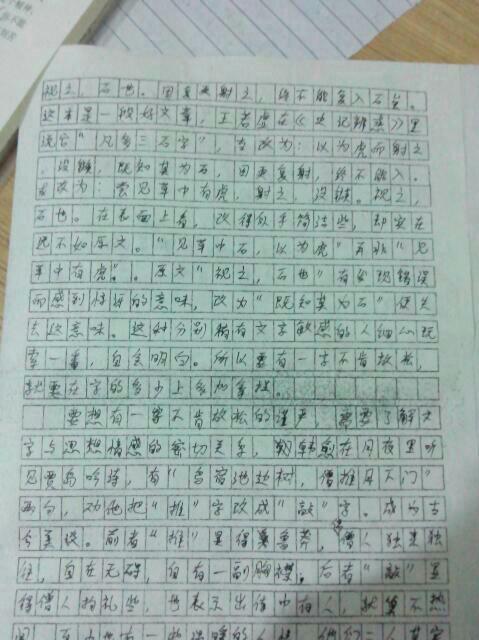 视之，石也。因复更射之，终不能复入石矣。
这本是一段好文章，王若虚在《史记辨惑》里
说它"凡多三石字"，当改为：以为虎而射之
，没镞，既知其为石，因更复射，终不能入。
或改为：尝见草中有虎，射之，没镞。视之，
石也。在表面上看，改得似乎简洁些，却实在
远不如原文。"见草中石，以为虎"并非"见
草中有虎"。原文"视之，石也"有发现错误
而感到惊讶的意味，改为"既知其为石"便失
去这意味。这时分别稍有文字敏感的人细心玩
索一番，自会明白。所以要有一字不肯放松，
就要在字的多少上多加
要想有一字不肯放松的谨严，需要了解文
字与思想情感的密切关系，韩愈在月夜里听
见贾岛吟诗，有"鸟宿池边树，僧推月下门"
两句，劝他把"推"字改成"敲"字。成为古
今美谈。前者"推"显得鲁莽，僧人独来独
往，自在无碍，自有一副胸襟。后者"敲"显
得僧人拘礼些，也表示出寺中有人，就算不热